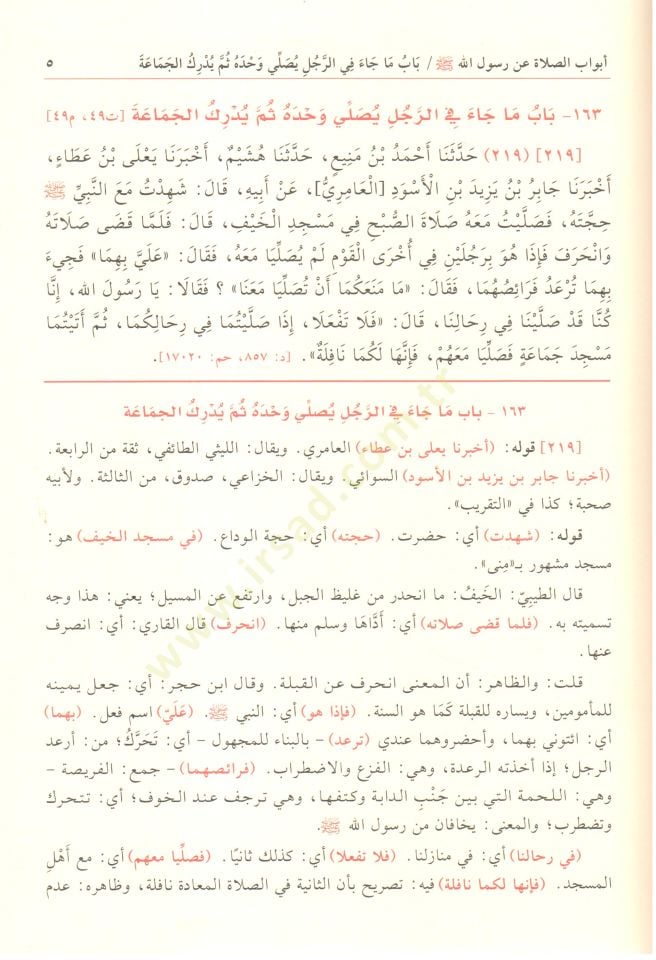 أبواب الصلاة عن رسول الله ﷺ / بَابُ مَا جَاءَ فِي الرَّجُلِ يُصَلِّي وَحْدَهُ ثُمَّ يُدْرِكُ الجَمَاعَةَ
٥
١٦٣- بَابُ مَا جَاءَ فِي الرَّجُلِ يُصَلِّي وَحْدَهُ ثُمَّ يُدْرِكُ الجَمَاعَةَ [ت٤٩، م٤٩]
[٢١٩] (٢١٩) حَدَّثَنَا أَحْمَدُ بْنُ مَنِيعٍ، حَدَّثَنَا هُشَيْمٌ، أَخْبَرَنَا يَعْلَى بْنُ عَطَاءٍ،
أَخْبَرَنَا جَابِرُ بْنُ يَزِيدَ بْنِ الْأَسْوَدِ [العَامِرِيُّ]، عَنْ أَبِيهِ، قَالَ: شَهِدْتُ مَعَ النَّبِيِّ ﷺ
حِجَّتَهُ، فَصَلَّيْتُ مَعَهُ صَلَاةَ الصُّبْحِ فِي مَسْجِدِ الْخَيْفِ، قَالَ: فَلَمَّا قَضَى صَلَاتَهُ
وَانْحَرَفَ فَإِذَا هُوَ بِرَجُلَيْنِ فِي أُخْرَى الْقَوْمِ لَمْ يُصَلِّيَا مَعَهُ، فَقَالَ: «عَلَيَّ بِهِمَا» فَجِيءَ
بِهِمَا تُرْعَدُ فَرَائِصُهُمَا، فَقَالَ: «مَا مَنَعَكُمَا أَنْ تُصَلِّيَا مَعَنَا» ؟ فَقَالَا: يَا رَسُولَ الله، إِنَّا
كُنَّا قَدْ صَلَّيْنَا فِي رِحَالِنَا، قَالَ: «فَلَا تَفْعَلَا، إِذَا صَلَّيْتُمَا فِي رِحَالِكُمَا، ثُمَّ أَتَيْتُمَا
مَسْجِدَ جَمَاعَةٍ فَصَلِّيَا مَعَهُمْ، فَإِنَّهَا لَكُمَا نَافِلَةٌ». [د: ٨٥٧، حم: ١٧٠٢٠].
١٦٣ - باب مَا جَاءَ فِي الرَّجُلِ يُصَلِّي وَحْدَهُ ثُمَّ يُدْرِكُ الجَمَاعَة
[٢١٩] قوله: (أخبرنا يعلى بن عطاء) العامري. ويقال: الليثي الطائفي، ثقة من الرابعة.
(أخبرنا جابر بن يزيد بن الأسود) السوائي. ويقال: الخزاعي، صدوق، من الثالثة. ولأبيه
صحبة؛ كذا في «التقريب».
قوله: (شهدت) أي: حضرت. (حجته) أي: حجة الوداع. (في مسجد الخيف) هو:
مسجد مشهور بـ«مِنى».
قال الطيبيّ: الخَيفُ: ما انحدر من غليظ الجبل، وارتفع عن المسيل؛ يعني: هذا وجه
تسميته به. (فلما قضى صلاته) أي: أدَّاهَا وسلم منها. (انحرف) قال القاري: أي: انصرف
عنها.
قلت: والظاهر: أن المعنى انحرف عن القبلة. وقال ابن حجر: أي: جعل يمينه
للمأمومين، ويساره للقبلة كَمَا هو السنة. (فإذا هو) أي: النبي ﷺ. (عَلَيّ) اسم فعل. (بهما)
أي: ائتوني بهما، وأحضروهما عندي (ترعد) - بالبناء للمجهول - أي: تَحَرَّكُ؛ من: أرعد
الرجل؛ إذا أخذته الرعدة، وهي: الفزع والاضطراب. (فرائصهما) - جمع: الفريصة -
وهي: اللحمة التي بين جَنْبِ الدابة وكتفها، وهي ترجف عند الخوف؛ أي: تتحرك
وتضطرب؛ والمعنى: يخافان من رسول الله ﷺ.
(في رحالنا) أي: في منازلنا. (فلا تفعلا) أي: كذلك ثانيًا. (فصلِّيا معهم) أي: مع أَهْلِ
المسجد. (فإنها لكما نافلة) فيه: تصريح بأن الثانية في الصلاة المعادة نافلة، وظاهره: عدم
www.irsad.com.tr